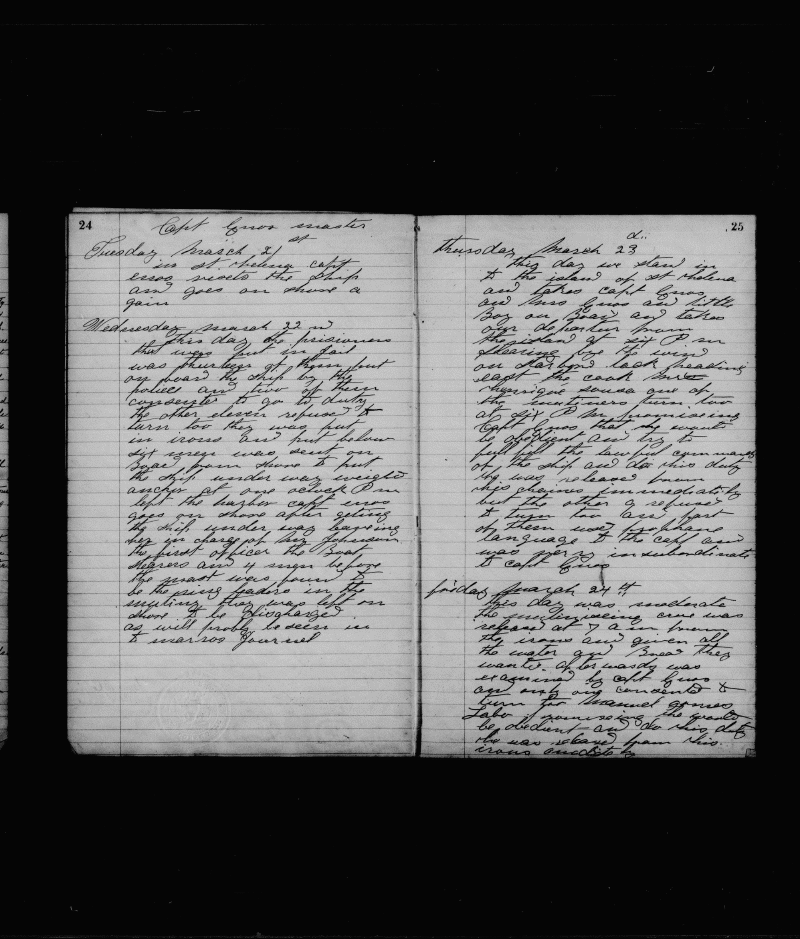 24
Capt Enos master
Tuesday March 21st
in St. Helena capt
enos visets the ship
and goes on shore a
gain
Wednesday march 22 n
this day the prisioners
that were put in Jail
was thurteen of them put
on board the ship by the
police and two of them
consented to go to duty
the other eleven refused to
turn too they was put
in irons and put below
six men was sent on
Board from shore to put
the ship under way weighed
anchor at one oclock P m
left the harbor capt enos
goes on shore after geting
the ship under way leaveing
her in charge of Mr Johnson
the first officer the Boat
stearers and 4 men before
the mast were found to
be the ring leaders in the
mutiny they was left on
shore to be discharged
as will probly be seen in
to marros Journel
25
thursday March 23 d..
this day we stand in
to the island of St Helena
and takes capt Enos
and Mrs Enos and little
Boy on Board and takes
our departure from
the island at six P m
stearing bye the wind
on starbord tack heading
east the cook
Henrique Sousa one of
the mutineers turn too
at six P m promiseing
Capt Enos that he would
be obedient and try to
full fill the lawful commands
of the ship and do his duty
he was released from
his chaines immediately
but the other 9 refused
to turn too and part
of them used prophane
language to the capt and
was verry insubordinate
to capt Enos
friday March 24 th
this day was moderate
the crue was
released at 7 a m from
the irons and given all
the water and Bread they
wanted afterwards was
examined by capt Enos
and only one consented to
turn for Manuel gomes
Labo promiseing he would
be obedient and do his duty
he was released from his
irons